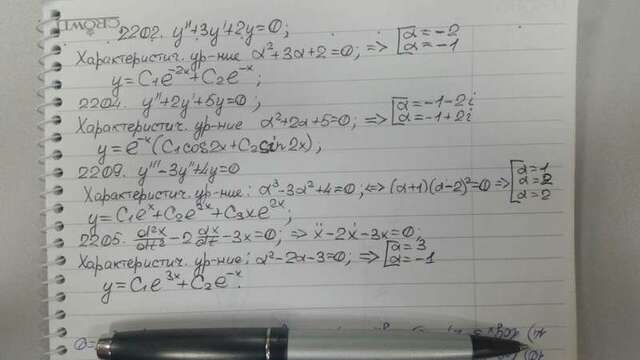 CROWN
2202. y''+3y'+2y=0;
Характеристич. ур-ние α²+3α+2=0; => [α=-2
α=-1
y=C₁e^-2x+C₂e^-x;
2204. y''+2y'+5y=0;
Характеристич. ур-ние α²+2α+5=0; => [α=-1-2i
α=-1+2i
y=e^-x(C₁cos2x+C₂sin2x);
2209. y'''-3y''+4y=0
Характеристич. ур-ние: α³-3α²+4=0; <=> (α+1)(α-2)²=0 => [α=1
α=2
α=2
y=C₁e^x+C₂e^2x+C₃xe^2x;
2205. d²x/dt²-2dx/dt-3x=0; => ẍ-2ẋ-3x=0;
Характеристич. ур-ние: α²-2α-3=0; => [α=3
α=-1
y=C₁e^3x+C₂e^-x.